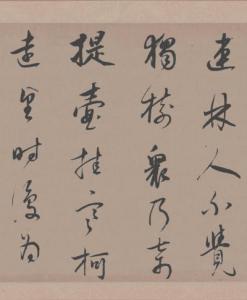 連林人不覺
獨樹衆乃奇
提壺挂寒柯
遠望時復為